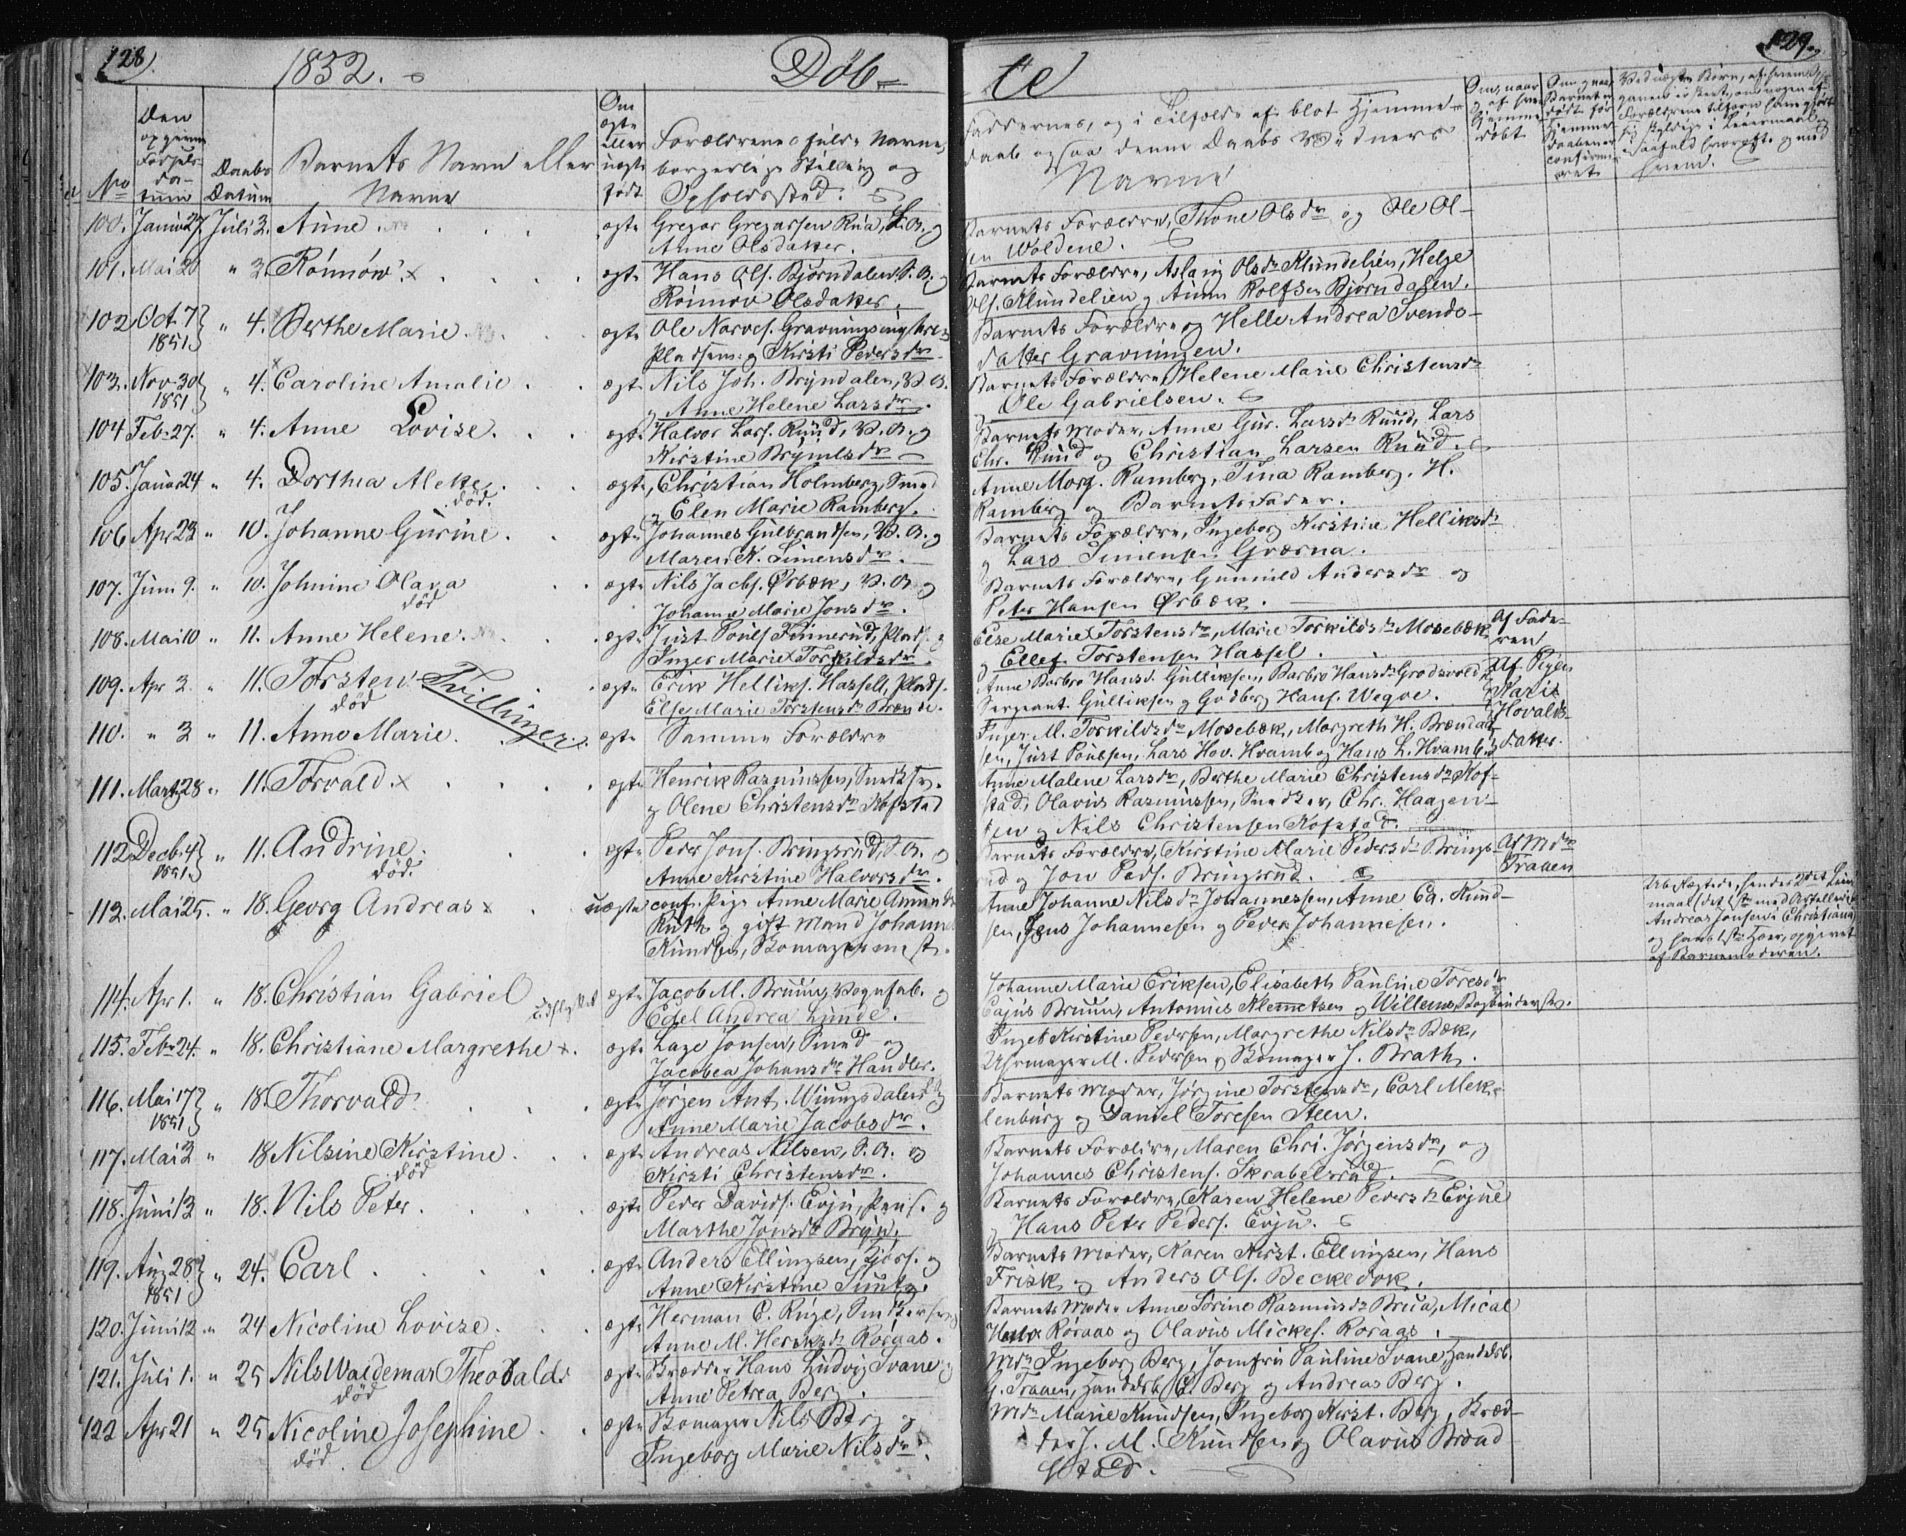 128.
1832.
Døb-
te
129.
No
Den
Daabs
Datum
Barnets Navn eller
Navne
Om
ægte
eller
uægte
født
Forældrenes fulde Navne,
borgerlige Stilling og
Opholdssted.
Faddernes, og i Tilfælde af blot Hjemme-
daab ogsaa denne Daabs Vidners
Navne
100. Juni 27. Juli 3. Anne ægte Gregar Gregarsen Rua, og
Anne Olsdatter.
Barnets Forældre, Thone Olsdr og Ole Ol-
sen Woldene.
101. Mai 20 " 3. Rønnøv ægte Hans Ols. Bjørndalen, og
Rønnov Olsdatter.
Barnets Forældre, Aslaug Olsdr Mundelien, Helge
Ols. Mundelien og Anne Rolfsen Bjørndalen.
102 Oct. 7 1851 " 4. Berthe Marie ægte Ole Narves. Gravningsmyhre
Pladsem: og Kirsti Pedersdr
Barnets Forældre og Helle Andrea Svends-
datter Gravningen.
103. Nov. 30 1851 " 4. Caroline Amalie ægte Nils Joh. Bryndalen,
og Anne Helene Larsdr.
Barnets Forældre, Helene Marie Christensdr
og Ole Gabrielsen.
104 Feb. 27. " 4. Anne Lovise. ægte Halvor Lars. Ruud, og
Kirstine Brynilsdr
Barnets Moder, Anne Gur. Larsdr Ruud, Lars
Chr. Ruud og Christian Larsen Ruud.
105. Januar 24 " 4. Dorthea Aleke ægte Christian Holmberg, Smed
død.
og Elen Marie Ramberg.
Anne Marg. Ramberg, Tina Ramberg. H.
Ramberg og Barnets Fader.
106 Apr 23 " 10. Johanne Gurine. ægte Johannes Gulbrandsen, og
Maren K. Simensdr.
Barnets Forældre, Ingeborg Kirstine Helliksdr
og Lars Simensen Græsna.
107. Juni 9. " 10. Johnine Olava ægte Nils Jacobs. Ørbæk, og
død
Johanne Marie Jonsdr.
Barnets Forældre, Gunnild Andersdr og
Peter Hansen Ørbæk.
108. Mai 10 " 11. Anne Helene. ægte Just Pouls Finnerud, Plads. og
Inger Marie Torkildsdr.
Else Marie Torstensdr, Marie Torkildsdr Mosebæk
og Ellef Torstensen Hassel.
Af Fade-
ren
109. Apr 2. " 11. Torsten ægte Erik Helliks. Hassell, Plads.
død Tvillinger.
Else Marie Torstensdr Brænde.
Anne Barbro Hansd. Gulliksen, Barbro Hansdr Grodsvold,
Sergeant Gulliksen og Godberg Hans. Wegoe.
Af Pigen
Kari
Hovalds-
datter.
110. " 2 " 11. Anne Marie. ægte Samme Forældre
Inger M. Torkildsdr Mosebæk, Margreth H. Brænda-
sen, Just Poulsen, Lars Hov. Hvamb og Hans L. Hvamb
111. Marts 28 " 11. Torvald ægte Henrik Rasmussen, Snedker,
og Olene Christensdr Kofstad
Anne Malene Larsdr, Berthe Marie Christensdr Kof-
stad, Olavus Rasmussen, Snedker, Chr. Haagen-
sen og Nils Christensen Kofstad.
112 Decb. 4 1851. " 11. Andrine. ægte Peder Jons. Bringsrud, og
død.
Anne Kirstine Halvorsdr.
Barnets Forældre, Kirstine Marie Pedersdr Brings-
rud og Jon Peds. Bringsrud.
Af Mdm
Traaen
113. Mai 25. " 18. Georg Andreas uægte conf. Pige Anne Marie Amunds
Ruth og gift Mand Johannes
Knudsen, Skomagersvend.
Anne Johanne Nilsdr Johannessen, Anne Ca. Knud-
sen, Jens Johannesen og Peder Johannesen.
Andreas Jonsen i Christiania
af Barnemoderen.
114. Apr 1. " 18. Christian Gabriel ægte Jacob M. Bruun, Vognfab. og
Edel Andrea Lunde.
Johanne Marie Eriksen, Elisabeth Pauline Toresdr
Cajus Bruun, Antonius Klemetsen og Willems, Bogbinder
115. Feb. 24. " 18. Christiane Margrethe ægte Lage Jonsen, Smed og
Jacobea Johansdr Handler.
Ingeb. Kirstine Pedersen, Margrethe Nilsdr Bæk,
Uhrmager M. Pedersen og Skomager J. Brath.
116. Mai 17 1851 " 18. Thorvald ægte Jørgen Ant. Wiungsdalen og
Anne Marie Jacobsdr.
Barnets Moder, Jørgine Torstensdr, Carl Mek-
lenburg og Daniel Toresen Steen.
117. Mai 2 " 18 Nilsine Kirstine ægte Andreas Nilsen, og
død
Kirsti Christensdr.
Barnets Forældre, Maren Chri. Jørgensdr, og
Johannes Christens. Skrabelsrud.
118. Juni 13 " 18. Nils Peter ægte Peder Davids. Evju, og
Marthe Jonsdr Bryn,
Barnets Forældre, Karen Helene Pedersdr Evjue
og Hans Peter Peders. Evju.
119. Aug 28 1851 " 24. Carl ægte Anders Ellingsen, og
Anne Kirstine Suntz.
Barnets Moder, Karen Kirst. Ellingsen, Hans
Frisk og Anders Ols. Beckedok.
120. Juni 12 " 24 Nicoline Lovise. ægte Herman C. Ruge, Snedker og
Anne M. Heriksdr Roraas.
Barnets Moder Anne Torine Rasmusdr Brua, Mical
Roraas og Olavus Mickels. Roraas.
121. Juli 1. " 25 Nils Waldemar Theobald ægte Skrædder Hans Ludvig Svane og
død
Anne Petrea Berg.
Mdm Ingeborg Berg, Jomfru Pauline Svane, Handelsb.
G. Traaen, Handelsb. C. Berg og Andreas Berg.
122 Apr 21 " 25 Nicoline Josephine ægte Skomager Nils Berg og
død.
Ingeborg Marie Nilsdr.
Mdm Marie Knudsen, Ingeborg Kirst. Berg, Skræd-
der J. M. Knudsen og Olavus Braad
sted.